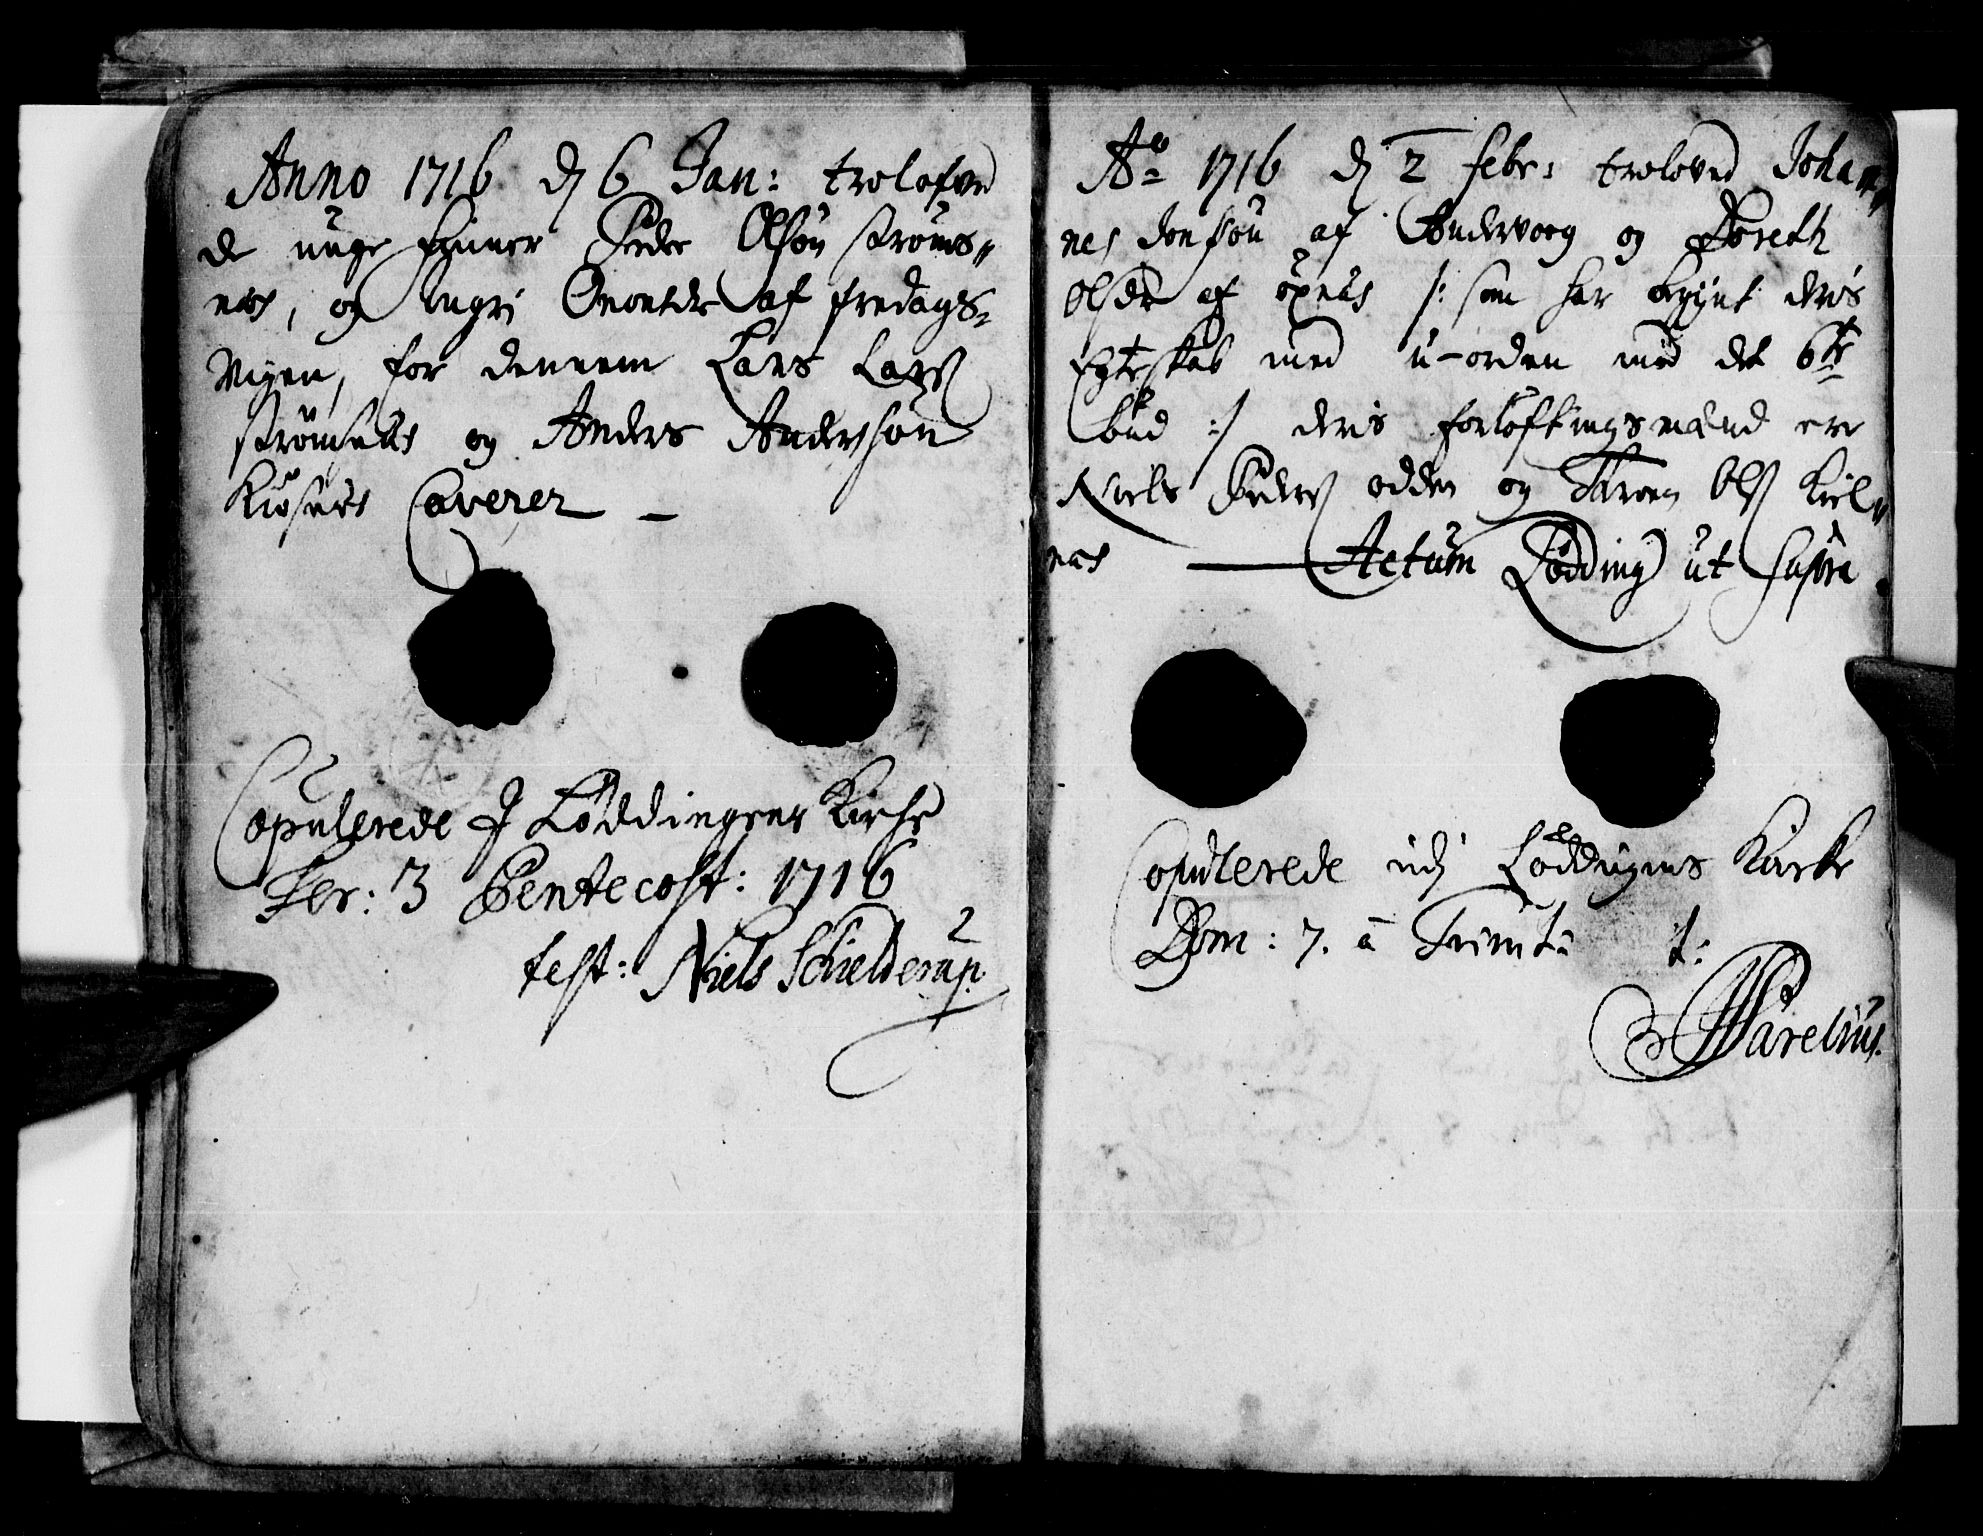 Anno 1716 d 6 Jan: trolofved
de unge finner Peder Olsøn Strøms„
næs, og Ingri Omontdr af fredags-
Vigen, for dennem Lars Larß
Strømsnæs og Anders Andersøn
Kiøsnæs Caverer —
Copulerede J Løddingens Kirche
Fer: 3 Pentecost: 1716
test: Niels Schielderup
Ao 1716 d 2 febr: troloved Johan„
nes Jonsøn af Sandvoog og Doreth
Olsdr af øxnæs /: som har begÿnt deris
Egteskab med u-orden mod det 6te
bud :/ deris forløftningsmænd ere
Niels Pederß odden og Olß Kiel„
næs — Actum Lødding ut supra
Copulerede udj Løddingens Kirke
Dom: 7. a Trinit: t:
Parelius.